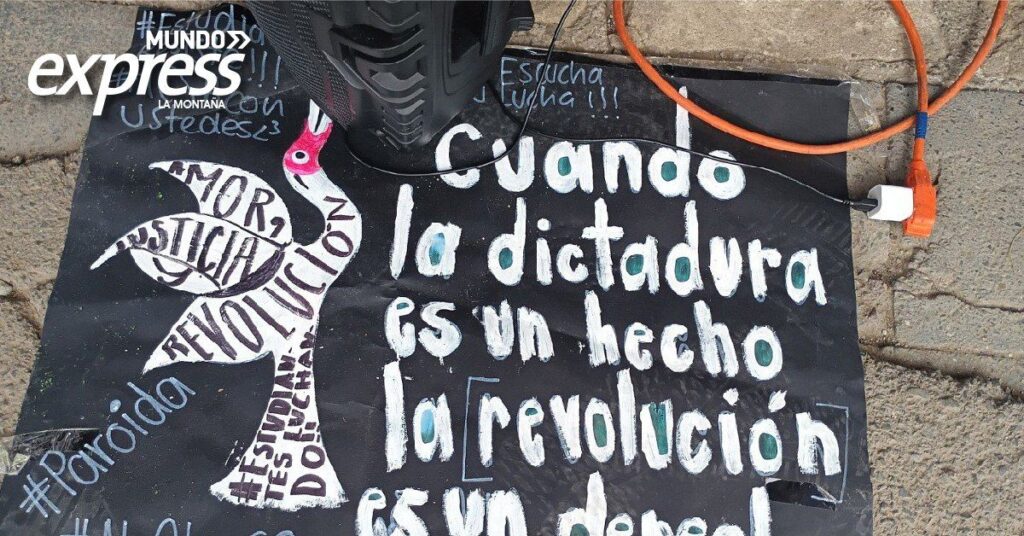 #Estudia
MUNDO
express
LA MONTAÑA
con
ustedes<3
Escucha
Lucha!!!
AMOR,
JUSTICIA
Y
REVOLUCIÓN
#ESTUDIAN
TES LUCHAN
DO
#Paróida
Cuando
la dictadura
es un hecho
la [revolución]
es un